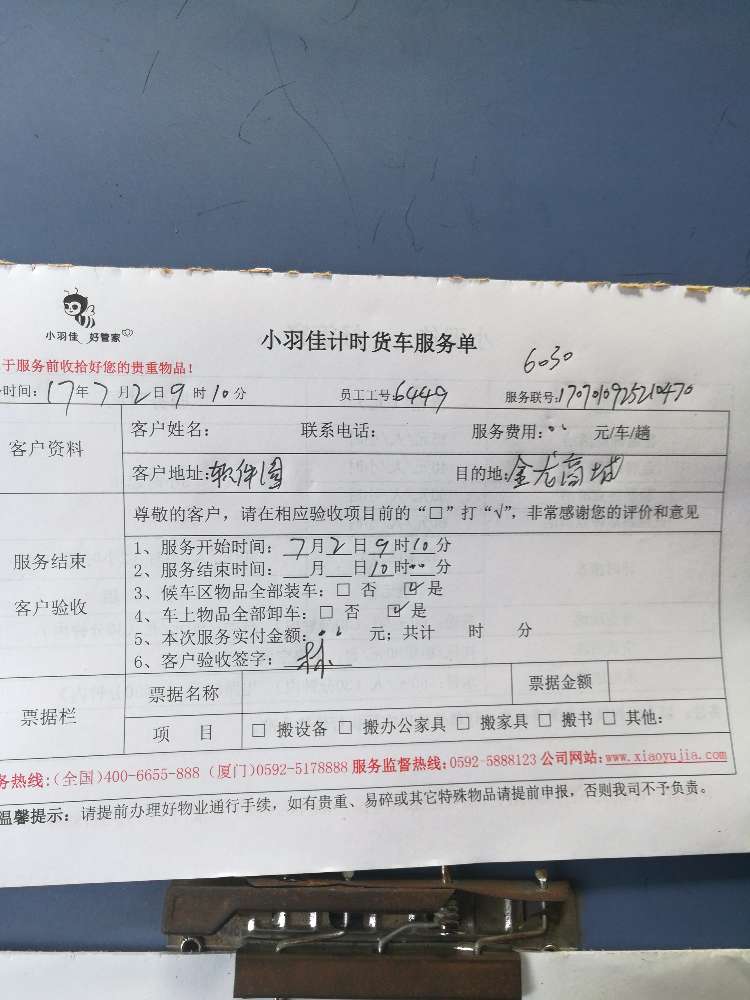 小羽佳 好管家
小羽佳计时货车服务单
于服务前收拾好您的贵重物品！
6030
时间：17年7月2日9时10分 员工工号：6449 服务联号：1707010925210470
客户资料
客户姓名： 联系电话： 服务费用：·· 元/车/趟
客户地址：软件园 目的地：金龙商城
服务结束
客户验收
尊敬的客户，请在相应验收项目前的“□”打“√”，非常感谢您的评价和意见
1、服务开始时间：7月2日9时10分
2、服务结束时间： 月 日10时··分
3、候车区物品全部装车：□ 否 ☑ 是
4、车上物品全部卸车：□ 否 ☑ 是
5、本次服务实付金额：·· 元；共计 时 分
6、客户验收签字：林
票据栏
票据名称 票据金额
项 目 □ 搬设备 □ 搬办公家具 □ 搬家具 □ 搬书 □ 其他：
务热线：(全国)400-6655-888 (厦门)0592-5178888 服务监督热线：0592-5888123 公司网站：www.xiaoyujia.com
温馨提示：请提前办理好物业通行手续，如有贵重、易碎或其它特殊物品请提前申报，否则我司不予负责。